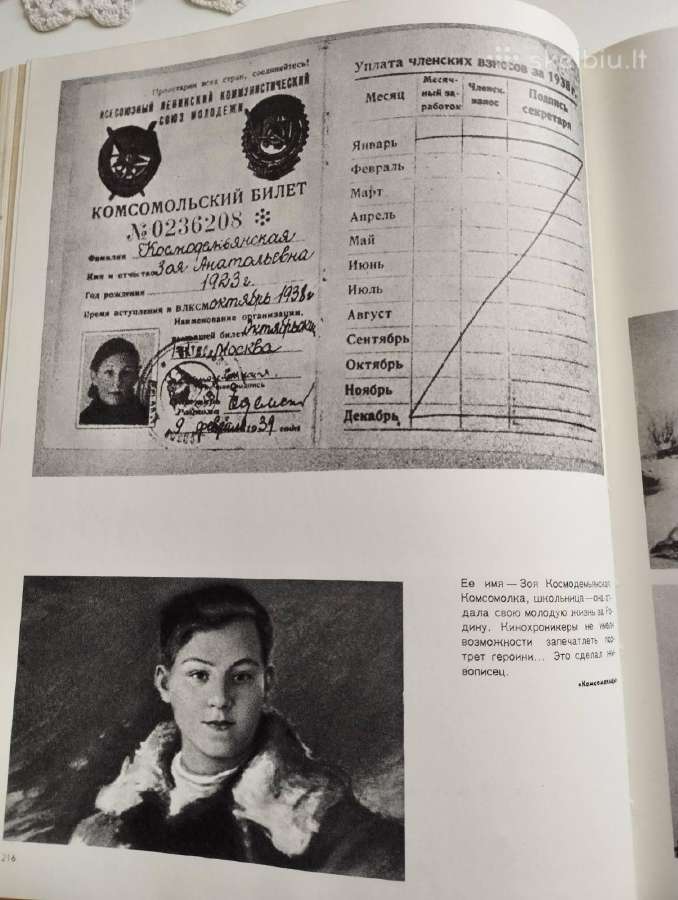 skelbiu.lt
Пролетарии всех стран, соединяйтесь!
ВСЕСОЮЗНЫЙ ЛЕНИНСКИЙ КОММУНИСТИЧЕСКИЙ
СОЮЗ МОЛОДЕЖИ
КОМСОМОЛЬСКИЙ БИЛЕТ
№ 0236208
Фамилия Космодемьянская
Имя и отчество Зоя Анатольевна
Год рождения 1923 г.
Время вступления в ВЛКСМ октябрь 1938 г
Наименование организации,
билет Октябрьский
Москва
9 февраля 1939 года
Уплата членских взносов за 1938 г.
Месяц
Месяч-
ный за-
работок
Членск.
взнос
Подпись
секретаря
Январь
Февраль
Март
Апрель
Май
Июнь
Июль
Август
Сентябрь
Октябрь
Ноябрь
Декабрь
Ее имя — Зоя Космодемьянская.
Комсомолка, школьница — она от-
дала свою молодую жизнь за Ро-
дину. Кинохроникеры не имели
возможности запечатлеть пор-
трет героини... Это сделал жи-
вописец.
«Комсомольцы»
216